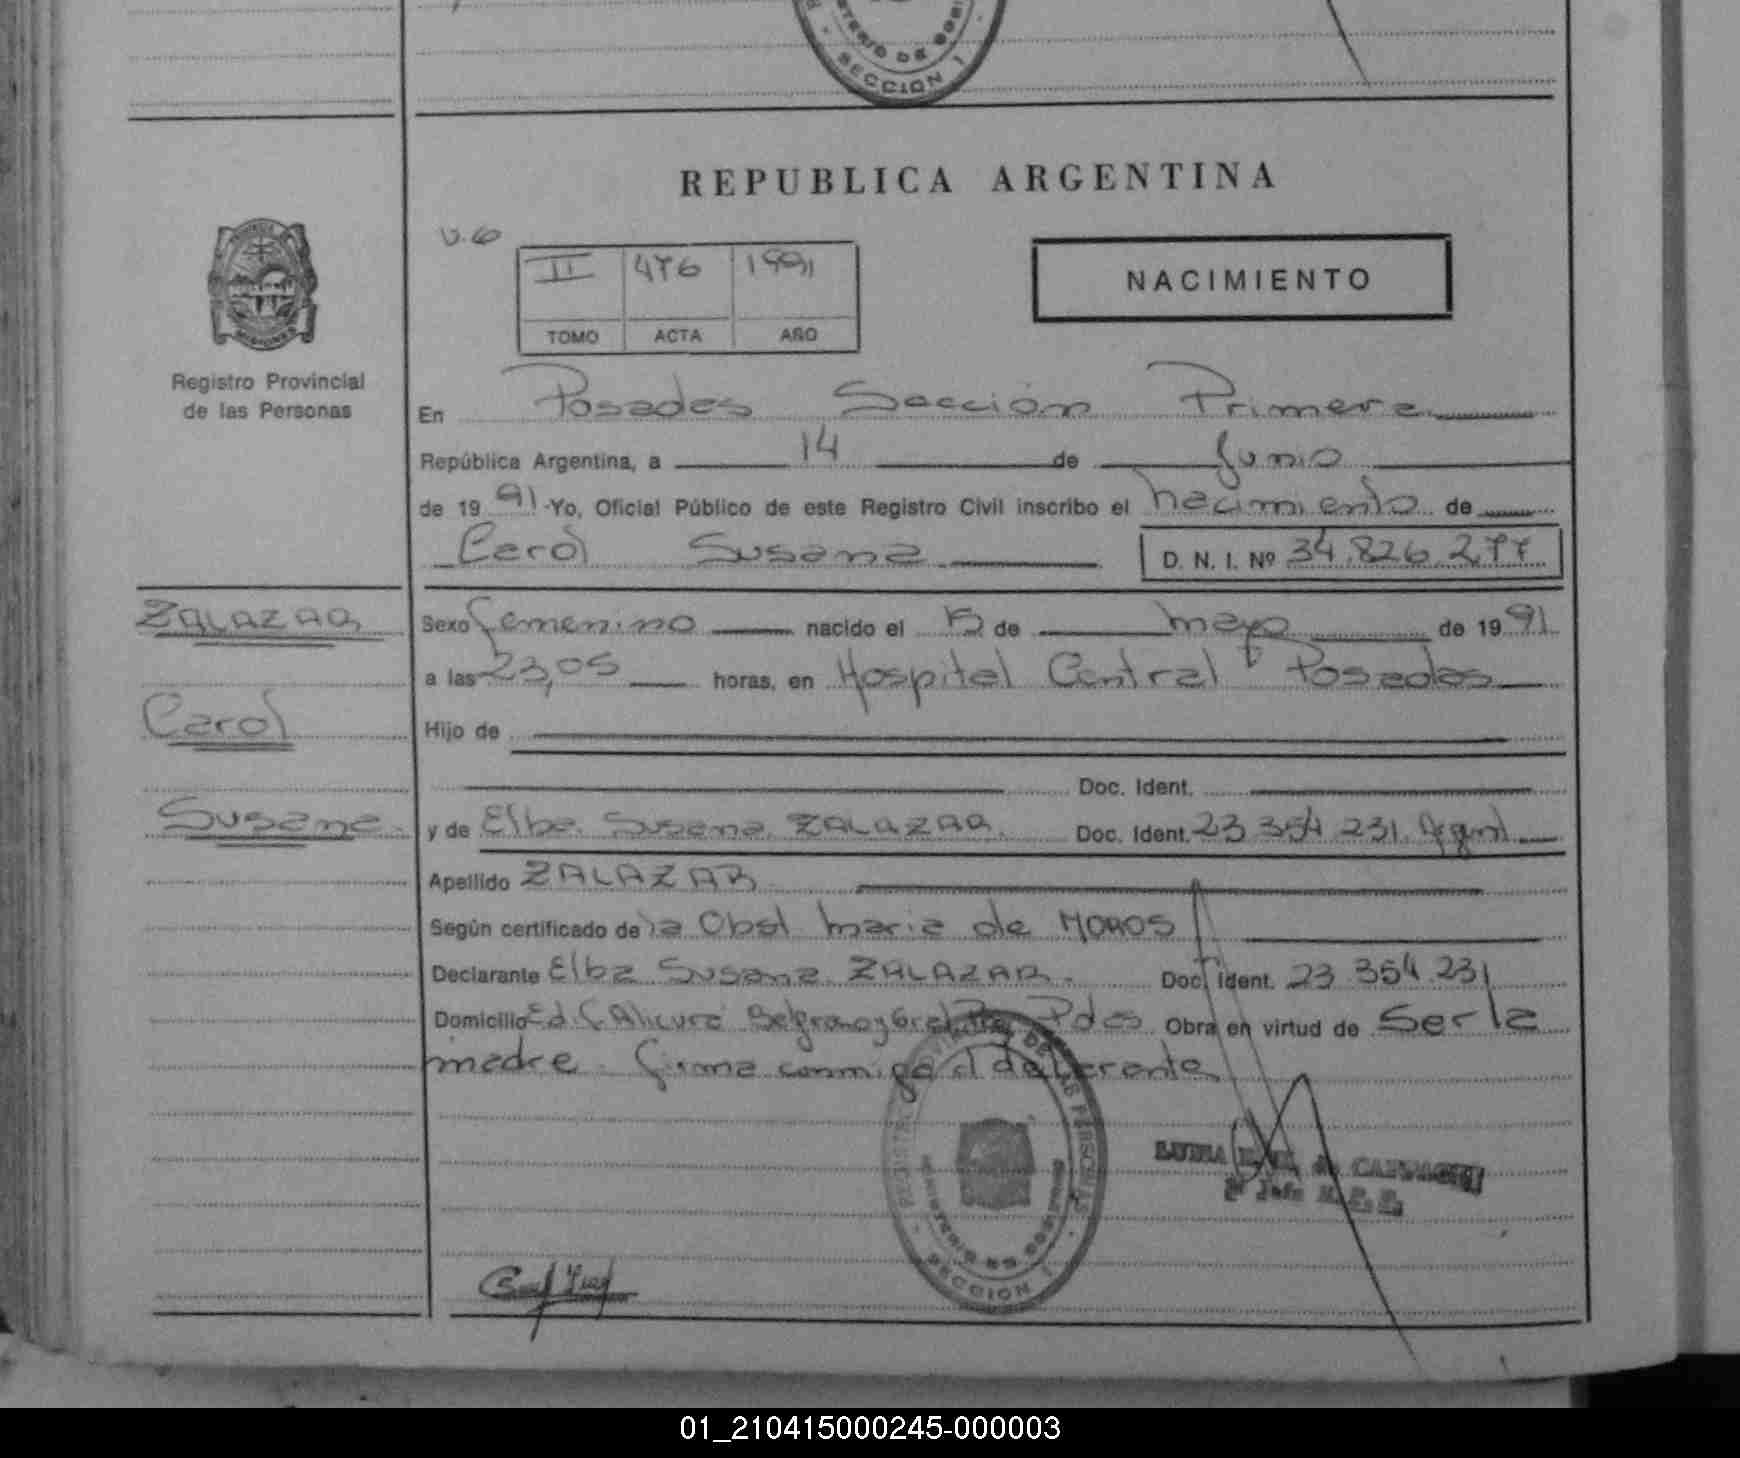 SECCION 1
REPUBLICA ARGENTINA
II 476 1991
TOMO ACTA AÑO
NACIMIENTO
MISIONES
Registro Provincial
de las Personas
En Posadas Sección Primera
República Argentina, a 14 de Junio
de 19 91 -Yo, Oficial Público de este Registro Civil inscribo el nacimiento de
Carol Susana D. N. I. Nº 34.826.277
ZALAZAR
Carol
Susana
Sexo femenino nacido el 15 de mayo de 19 91
a las 23,05 horas, en Hospital Central Posadas
Hijo de
Doc. Ident.
y de Elba Susana ZALAZAR Doc. Ident. 23 354 231 Argent
Apellido ZALAZAR
Según certificado de la Obst Maria de MOROS
Declarante Elba Susana ZALAZAR. Doc. Ident. 23.354.231
Domicilio Ed. C. Alicura Belgrano y Pdas Obra en virtud de Ser la
madre. firma conmigo el declarante
REGISTRO PROVINCIAL DE LAS PERSONAS
MINISTERIO DE GOBIERNO
SECCION 1
de
2º Jefe R. P. P.
01_210415000245-000003